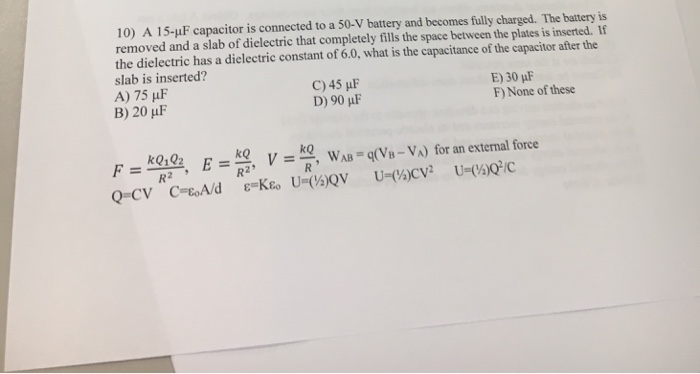 10) A 15-μF capacitor is connected to a 50-V battery and becomes fully charged. The battery is
removed and a slab of dielectric that completely fills the space between the plates is inserted. If
the dielectric has a dielectric constant of 6.0, what is the capacitance of the capacitor after the
slab is inserted?
A) 75 μF C) 45 μF E) 30 μF
B) 20 μF D) 90 μF F) None of these
F = kQ₁Q₂/R², E = kQ/R², V = kQ/R, W_AB = q(V_B – V_A) for an external force
Q=CV C=ε₀A/d ε=Kε₀ U=(½)QV U=(½)CV² U=(½)Q²/C